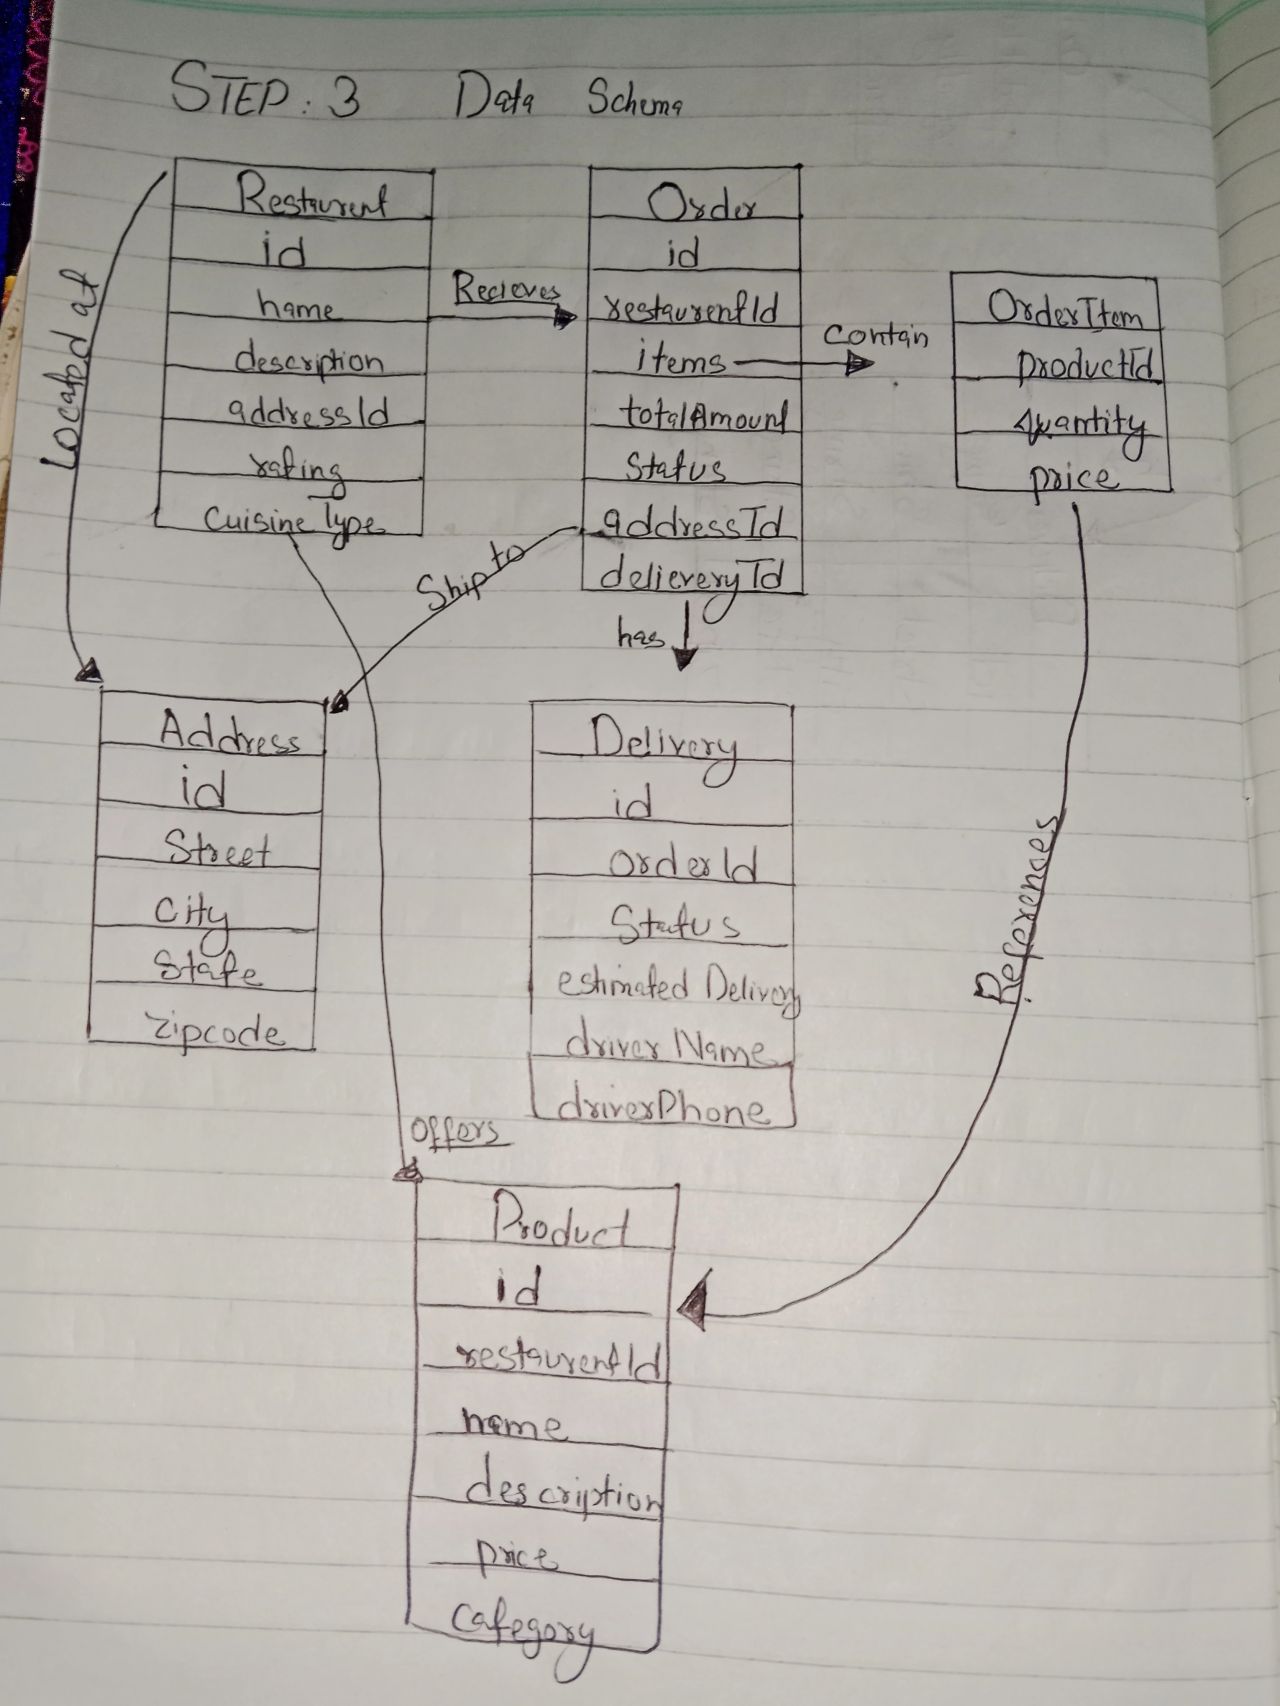 STEP: 3 Data Schema
Restaurent
id
name
description
addressId
rating
Cuisine Type
Located at
Recieves
Order
id
restaurentId
items
totalAmount
Status
addressId
delieveryId
Contain
OrderItem
productId
quantity
price
Ship to
has
Address
id
Street
City
State
zipcode
Delivery
id
orderId
Status
estimated Delivery
driverName
driverPhone
References
Offers
Product
id
restaurentId
name
description
price
category